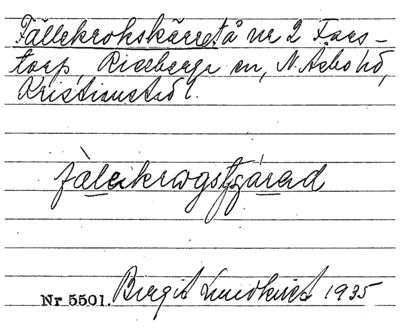 Fällekrokskärret å nr 2 Fars-
torp, Riseberga sn, N. Åsbo hd,
Kristianstad l.
fàleikrωgstʃǽrad
Nr 5501. Birgit Lundkvist 1935